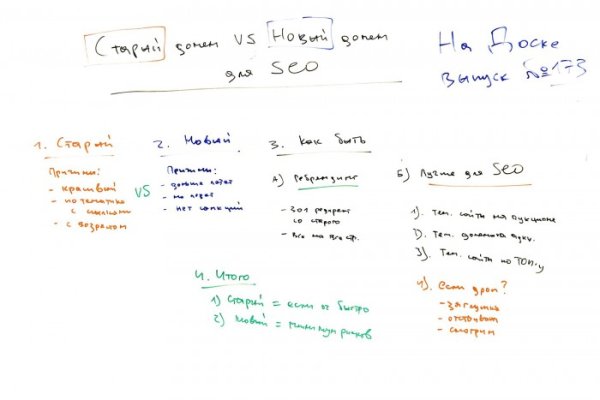 Старый домен VS Новый домен
для SEO
На Доске
выпуск №173
1. Старый
Причины:
- красивый
- по тематике
с ссылками
- с возрастом
VS
2. Новый
Причины:
- дольше
- нет санкций
3. Как быть
А) Ребрендинг
- 301 редирект
со старого
- все на все стр.
Б) Лучше для SEO
1). Тем. сайты на аукционе
2). Тем. домены аукц.
3). Тем. сайты по ТОП-у
4). Если дроп?
- заглушка
- отстаивают
- смотрим
4. Итого
1) Старый = если ок быстро
2) Новый = минимум рисков